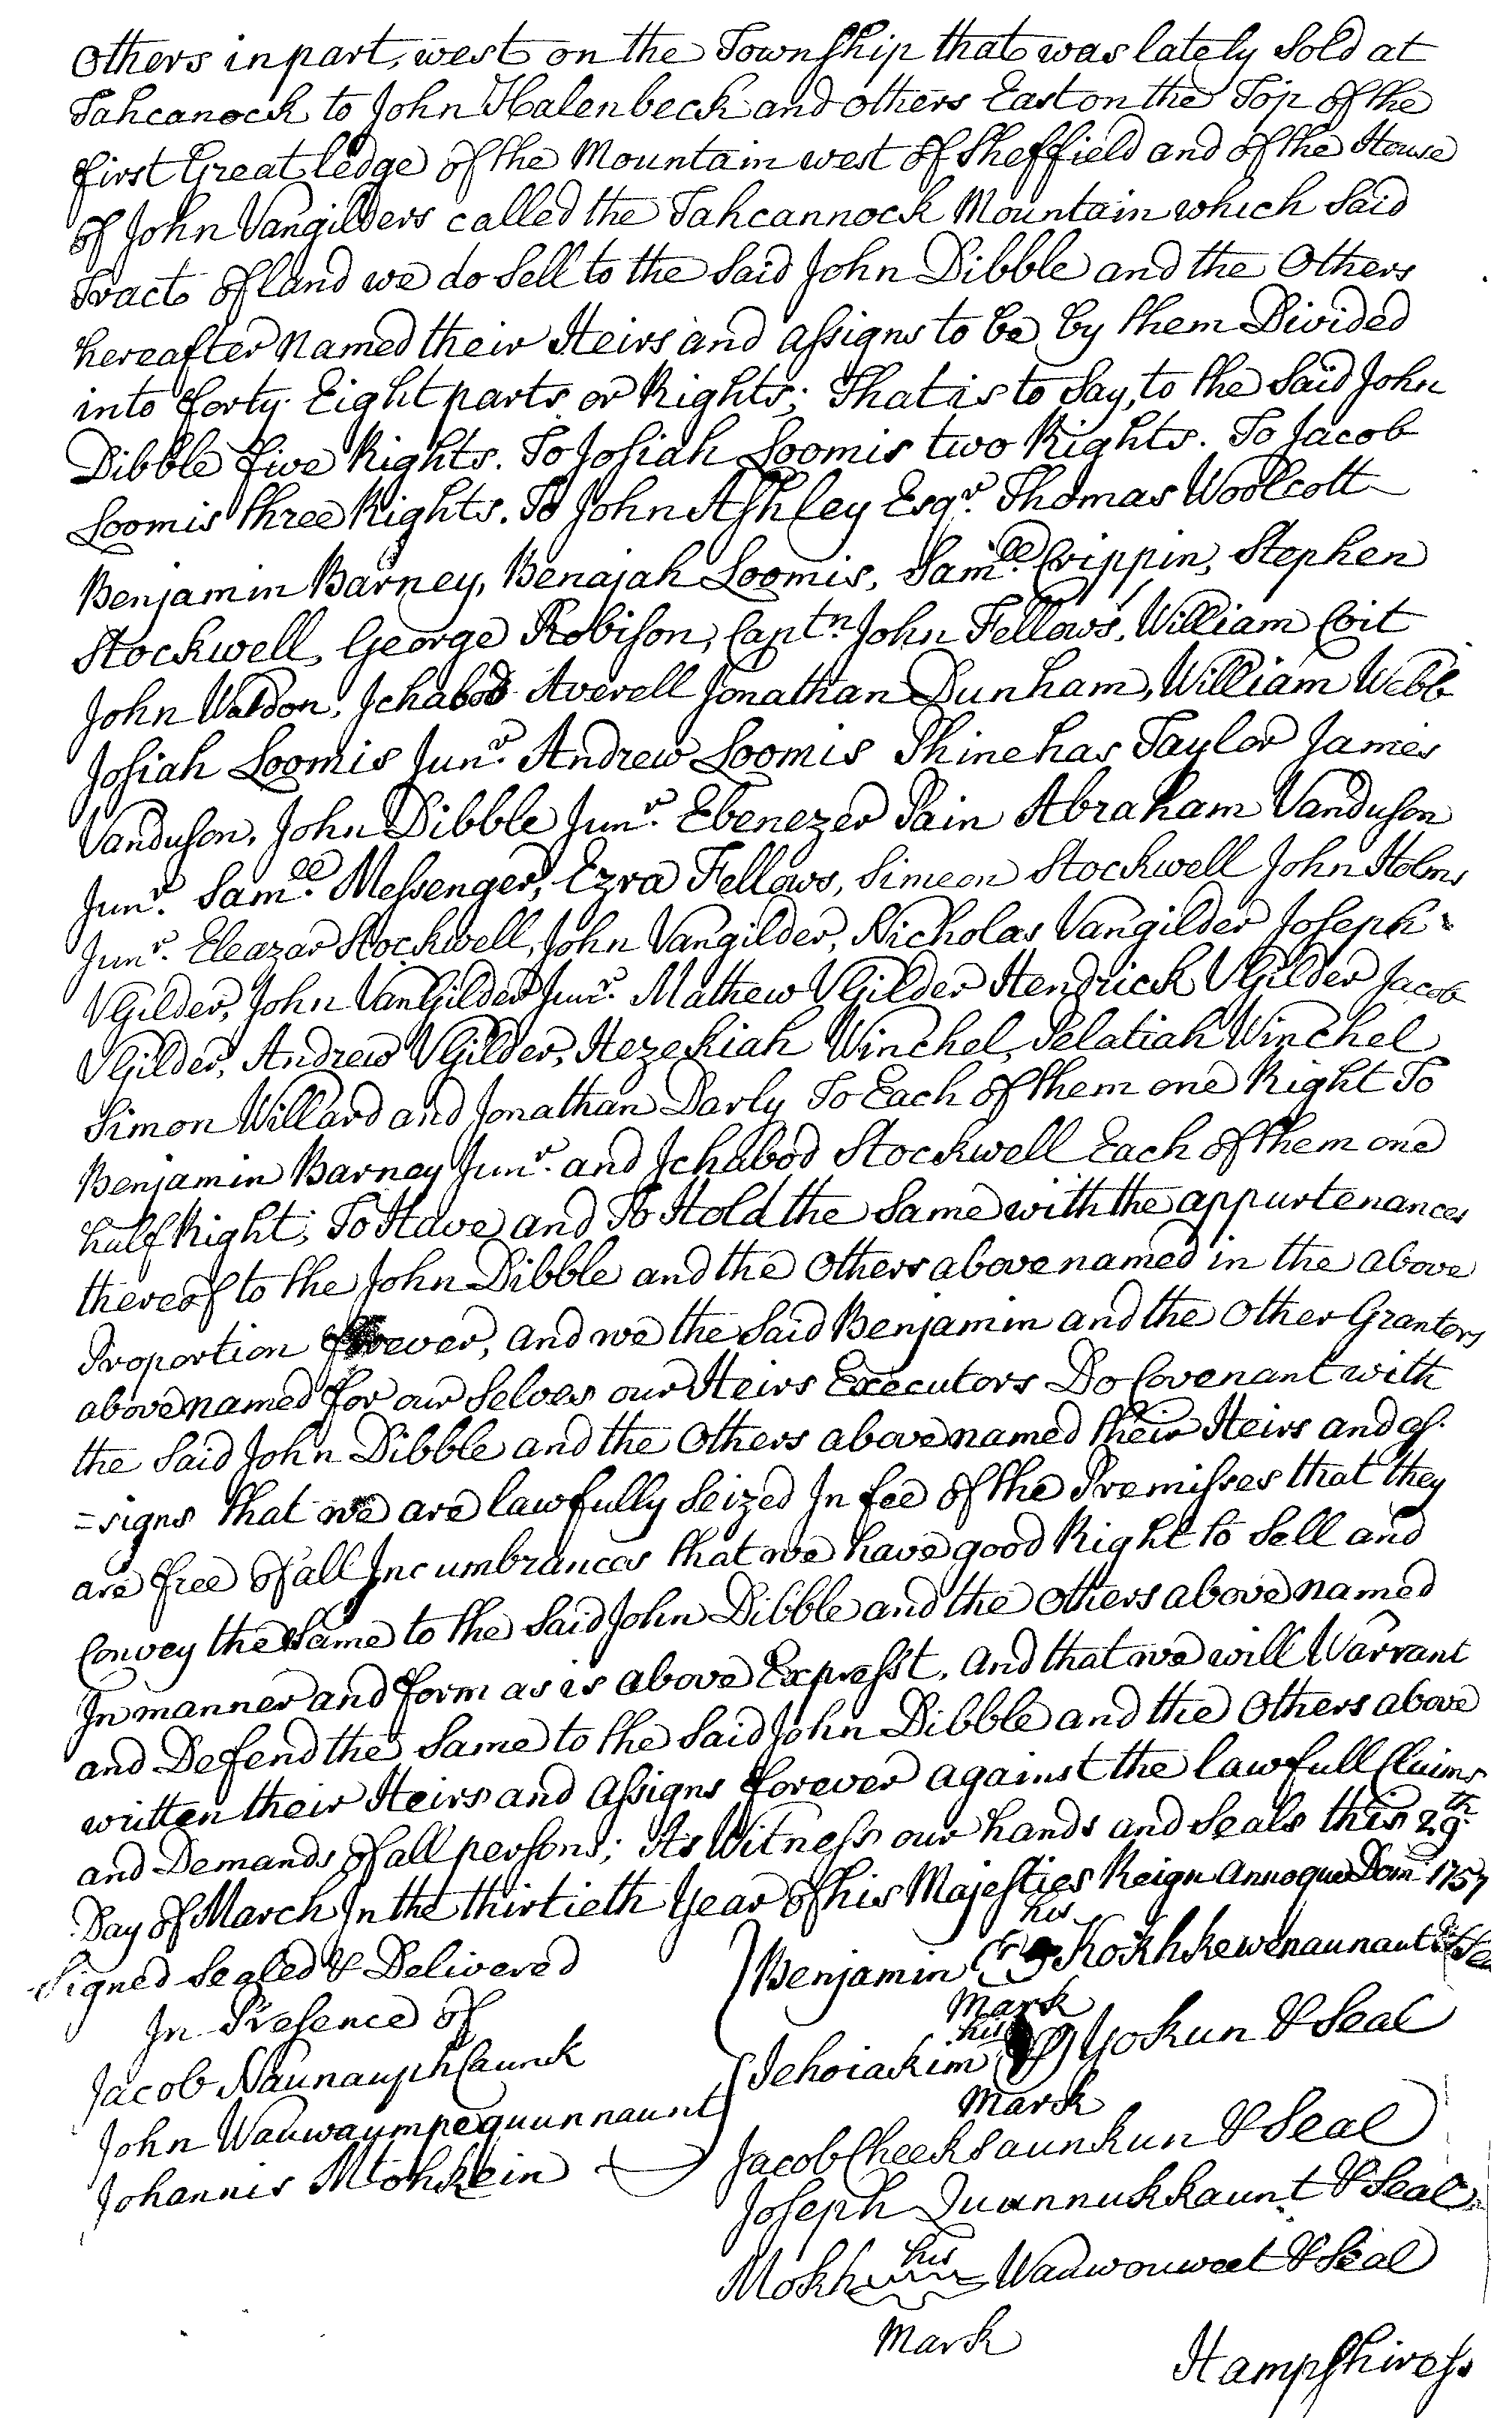 Others in part, west on the Township that was lately Sold at
Tahcanock to John Halenbeck and others East on the Top of the
first Great ledge of the Mountain west of Sheffield and of the House
of John Vangilders called the Tahcannock Mountain which Said
Tract of land we do Sell to the Said John Dibble and the Others
hereafter Named their Heirs and assigns to be by them Divided
into forty Eight parts or Rights; That is to Say, to the Said John
Dibble five Rights. To Josiah Loomis two Rights. To Jacob
Loomis three Rights. To John Ashley Esqr. Thomas Woolcott
Benjamin Barney, Benajah Loomis, Samll. Crippin, Stephen
Stockwell, George Robison, Captn. John Fellows, William Coit
John Waldon, Ichabod Averell Jonathan Dunham, William Webb
Josiah Loomis Junr. Andrew Loomis Phinehas Taylor James
Vanduson, John Dibble Junr. Ebenezer Pain Abraham Vanduson
Junr. Samll. Messenger, Ezra Fellows, Simeon Stockwell John Holms
Junr. Eleazar Stockwell, John Vangilder, Nicholas Vangilder Joseph
VGilder, John VanGilder Junr. Mathew VGilder Hendrick VGilder Jacob
VGilder, Andrew VGilder, Hezekiah Winchel, Pelatiah Winchel
Simon Willard and Jonathan Darly To Each of them one Right To
Benjamin Barney Junr. and Ichabod Stockwell Each of them one
half Right; To Have and To Hold the Same with the appurtenances
thereof to the John Dibble and the Others above named in the above
Proportion forever, and we the Said Benjamin and the Other Grantors
above named for our Selves our Heirs Executors Do Covenant with
the Said John Dibble and the Others above named their Heirs and as-
=signs that we are lawfully Seized In fee of the Premisses that they
are free of all Incumbrances that we have good Right to Sell and
Convey the Same to the Said John Dibble and the Others above named
In manner and form as is above Exprest, and that we will Warrant
and Defend the Same to the Said John Dibble and the Others above
written their Heirs and assigns forever against the lawfull Claims
and Demands of all persons; As Witness our hands and Seals this 29th.
Day of March In the thirtieth Year of his Majesties Reign Annoque Dom: 1757
Signed Sealed & Delivered
In Presence of
Jacob Naunauphtaunk
John Wauwaumpequunnaunt
Johannis Mtohksin
his
Benjamin Kokhkewenaunaut & Seal
Mark
his
Jehoiakim Yokun & Seal
Mark
Jacob Cheeksaunkun & Seal
Joseph Quannukkaunt & Seal
his
Mokh Wauwouweet & Seal
Mark
Hampshire ss